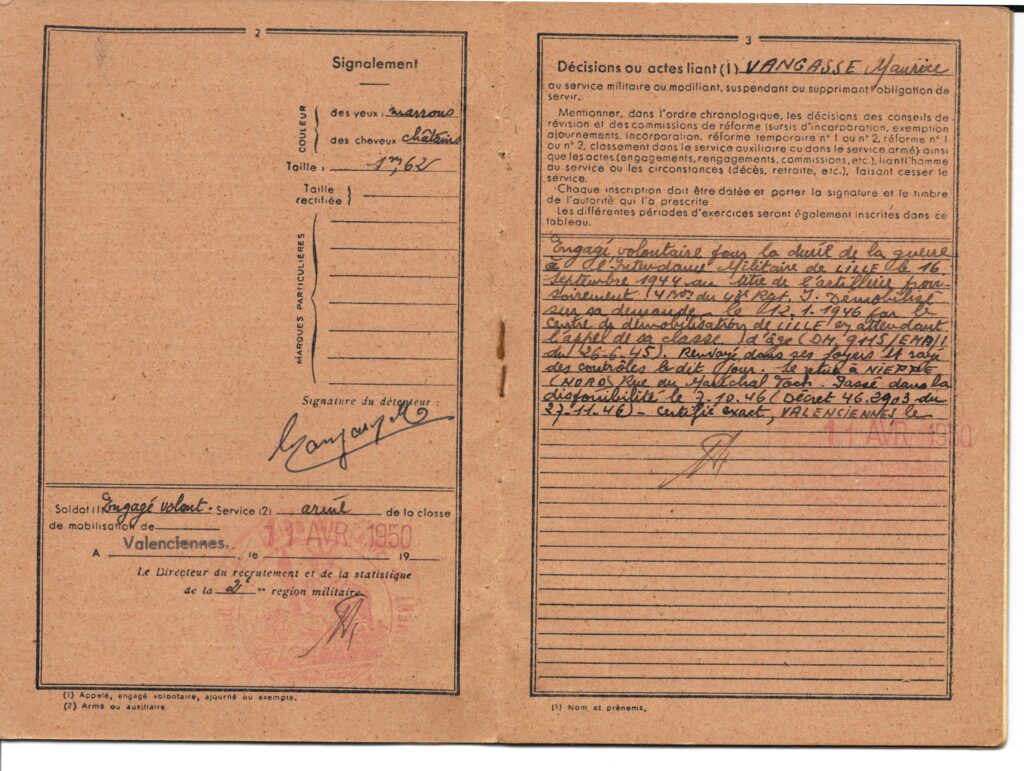 2
Signalement
COULEUR
des yeux : marrons
des cheveux châtains
Taille : 1m,62
Taille
rectifiée
MARQUES PARTICULIÈRES
Signature du détenteur :
Soldat (1) Engagé volont. Service (2) armé de la classe
de mobilisation de
A Valenciennes, le 11 AVR 1950 19
Le Directeur du recrutement et de la statistique
de la 2e region militaire
(1) Appelé, engagé volontaire, ajourné ou exempté.
(2) Armé ou auxiliaire
3
Décisions ou actes liant (1) VANGASSE Maurice
au service militaire ou modifiant, suspendant ou supprimant l'obligation de
servir.
Mentionner, dans l'ordre chronologique, les décisions des conseils de
révision et des commissions de réforme (sursis d'incorporation, exemption
ajournements, incorporation, réforme temporaire n° 1 ou n° 2, réforme n° 1
ou n° 2, classement dans le service auxiliaire ou dans le service armé) ainsi
que les actes (engagements, rengagements, commissions, etc.), liant l'homme
au service ou les circonstances (décès, retraite, etc.), faisant cesser le
service.
Chaque inscription doit être datée et porter la signature et le timbre
de l'autorité qui l'a prescrite
Les différentes périodes d'exercices seront également inscrites dans ce
tableau.
Engagé volontaire pour la durée de la guerre
à l'Intendance Militaire de LILLE le 16
Septembre 1944 au titre de l'artillerie provi-
soirement (4 Bon du 43e Rgt. I. Démobilisé
sur sa demande le 12.1.1946 par le
centre de démobilisation de LILLE en attendant
l'appel de sa classe d'âge (DM. 9115/EMA/1
du 26-6-45). Renvoyé dans ses foyers et rayé
des contrôles le dit jour. Se retire à NIEPPE
(NORD) Rue du Maréchal Foch. Passé dans la
disponibilité le 7.10.46 (Décret 46.2903 du
27.11.46) - Certifié exact, VALENCIENNES le
11 AVR. 1950
(1) Nom et prénoms.